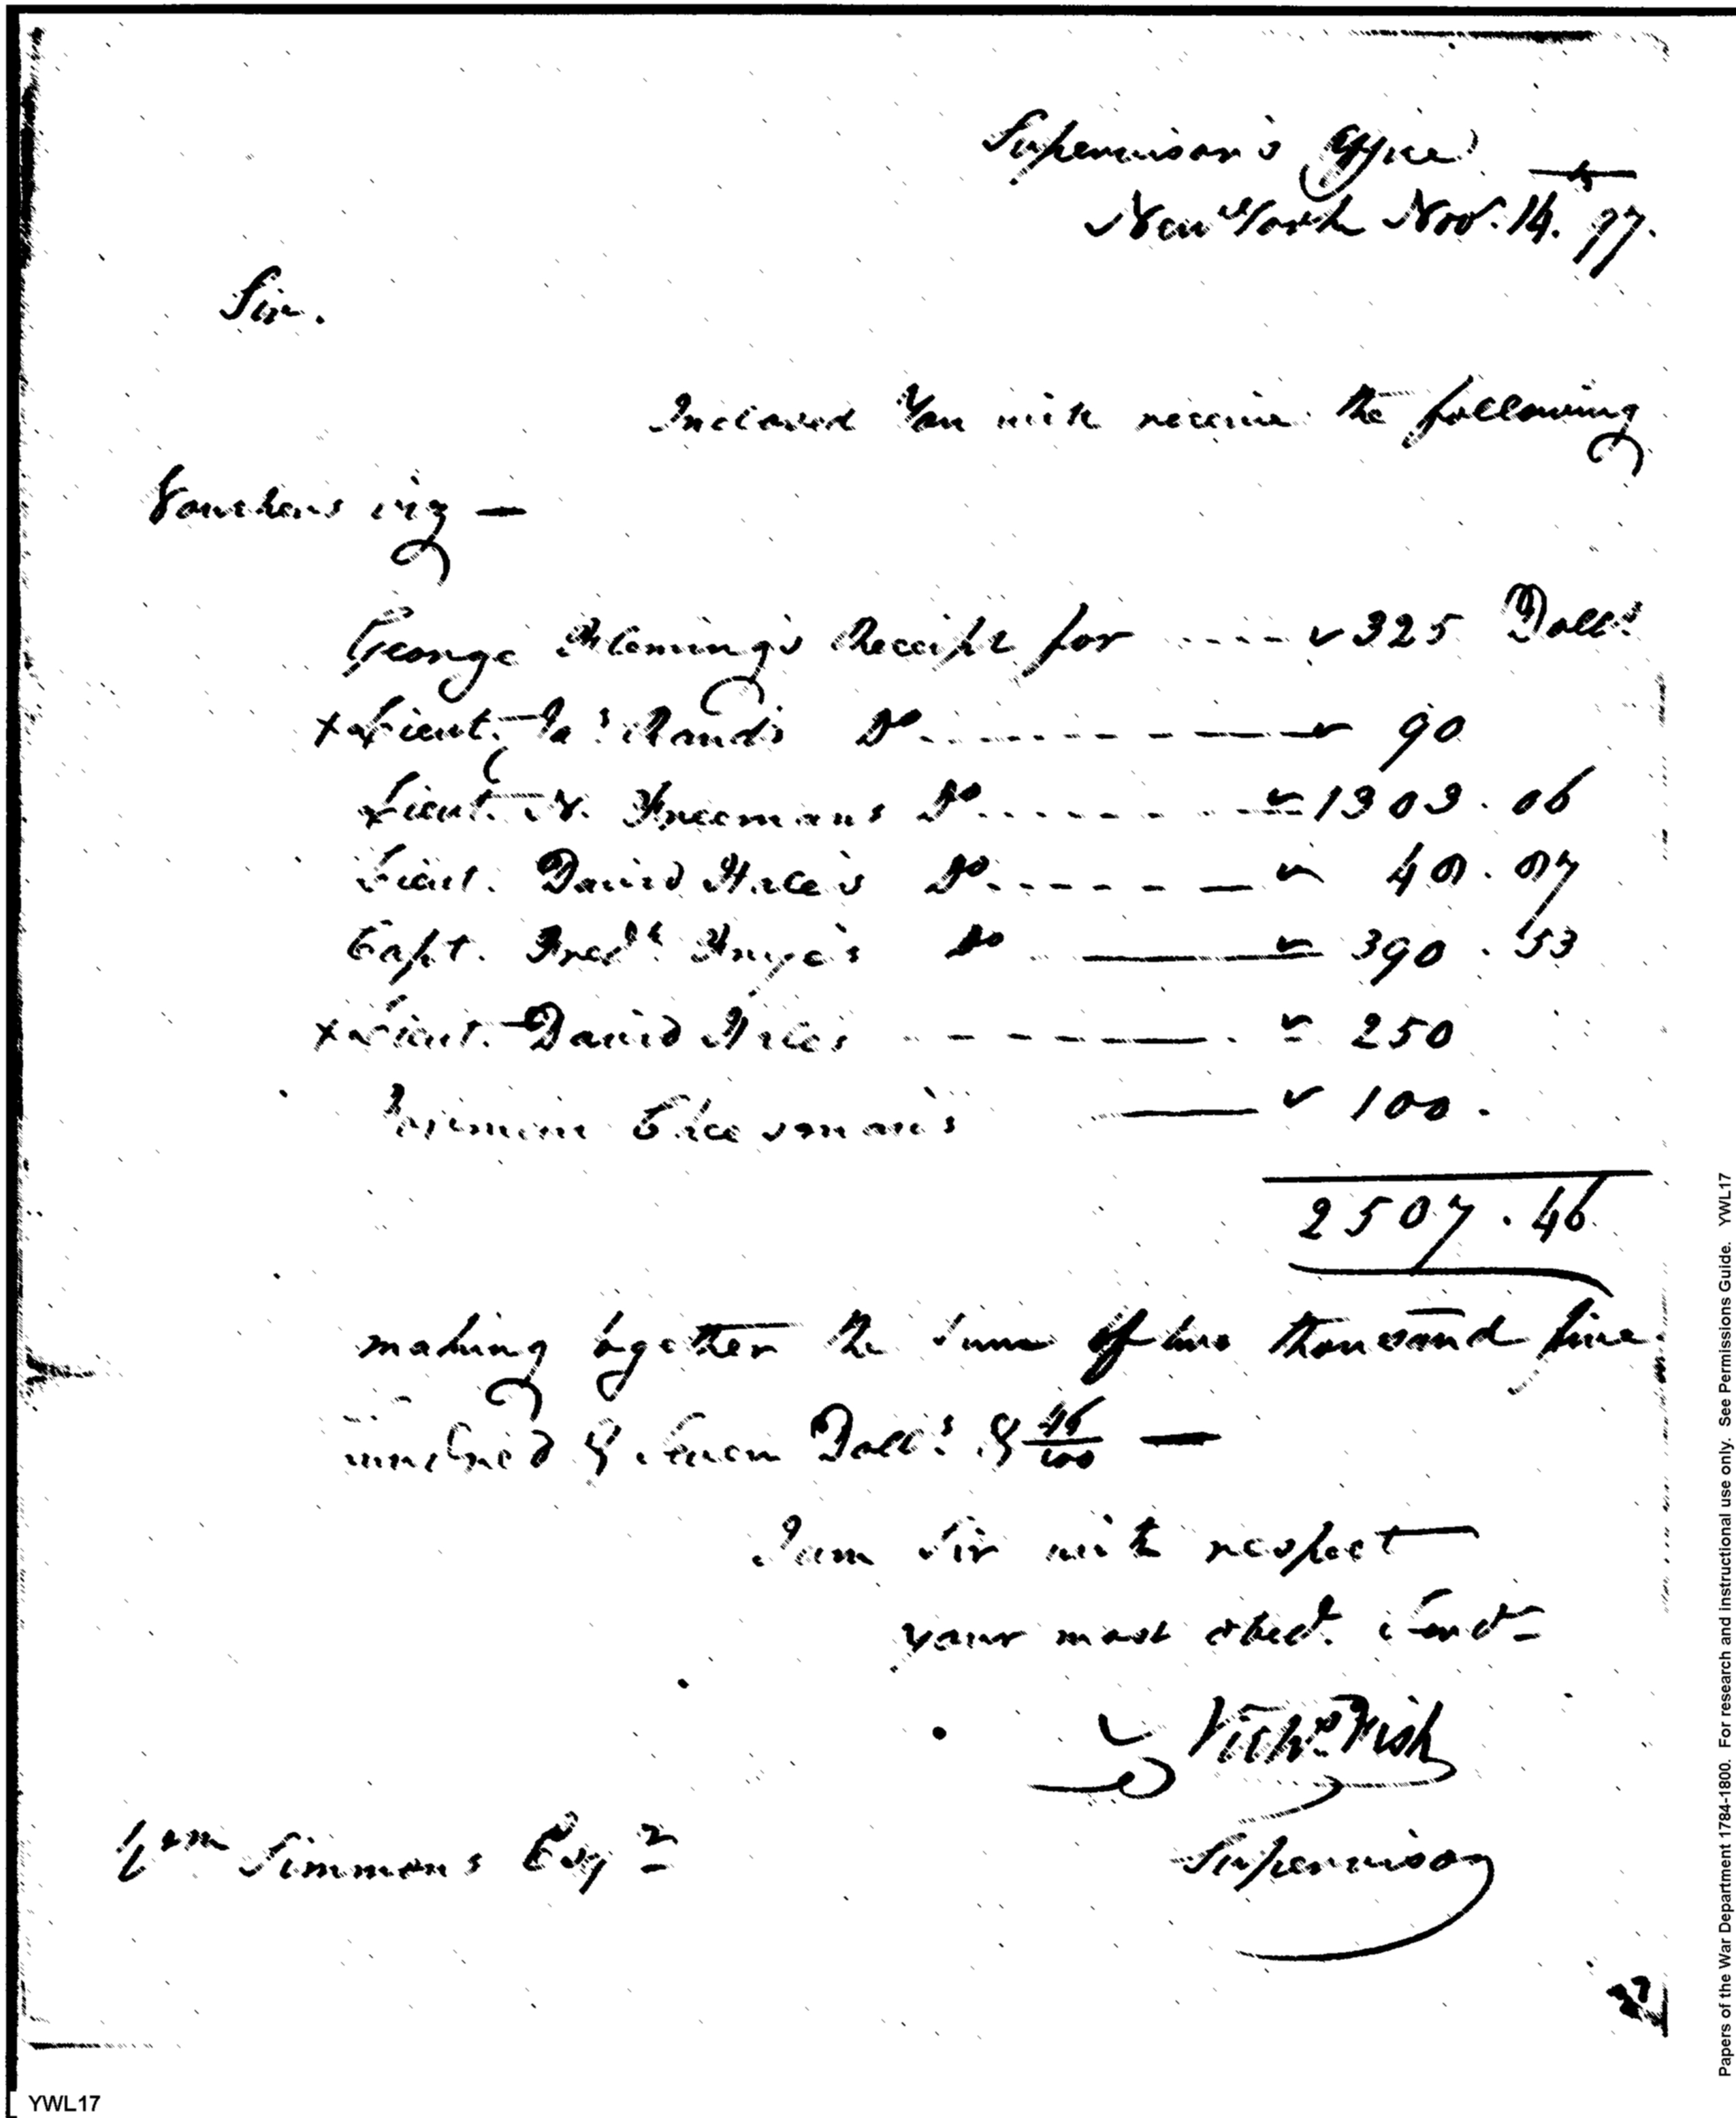 Supervisor's Office
New York Nov. 14th 97.
Sir.
Inclosed You will receive the following
Vouchers viz —
George Fleming's Receipt for ---- 325 Dolls.
x Lieut. Jas. Rand's Do ---- 90
Lieut. N. Freemans Do ---- 1303.06
Lieut. David Hale's Do ---- 48.87
Capt. Fredk. Frye's Do —— 390.53
x Lieut. David Hales ---- 250
Cheesman's —— 100.
2507.46
making together the sum of two thousand five
hundred & seven Dolls. & 46/100 —
I am Sir with respect
your most obedt. Servt.
Nichs. Fish
Supervisor
Wm Simmons Esqr
YWL17
Papers of the War Department 1784-1800. For research and instructional use only. See Permissions Guide. YWL17